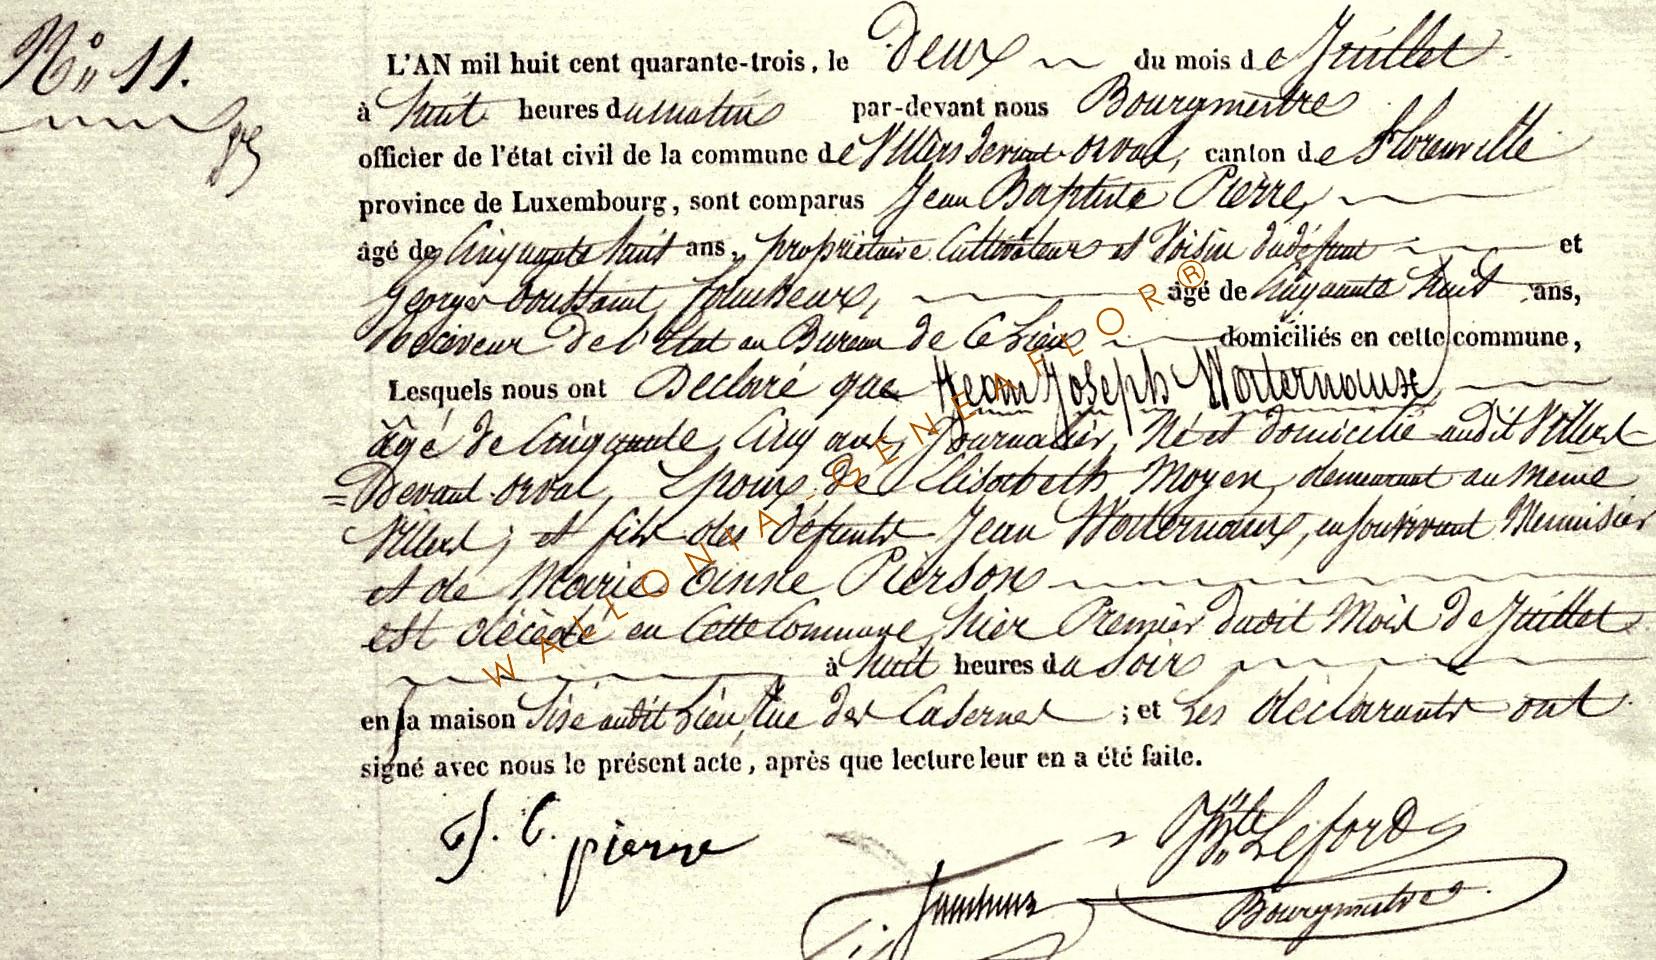 N° 11.
L'AN mil huit cent quarante-trois, le Deux du mois de Juillet
à huit heures du matin par-devant nous Bourgmestre
officier de l'état civil de la commune de Villers devant orval, canton de Florenville
province de Luxembourg, sont comparus Jean Baptiste Pierre,
âgé de Cinquante huit ans, propriétaire Cultivateur et Voisin dudéfunt et
George Toussaint âgé de Cinquante huit ans,
Receveur de l'Etat au Bureau de Ce Lieu domiciliés en cette commune,
Lesquels nous ont Declaré que Jean Joseph Waternaux
âgé de Cinquante Cinq ans, Journalier, Né et domicilié audit Villers
=Devant orval, Epoux de Elisabeth Moyen, demeurant au même
Villers; et fils des défunts Jean Waternaux, en son vivant Menuisier
et de Marie Anne Pierson
est décédé en Cette Commune, hier Premier dudit Mois de Juillet
à huit heures du Soir
en sa maison Sise audit Lieu, Rue des Casernes ; et Les déclarants ont
signé avec nous le présent acte, après que lecture leur en a été faite.
J. B. pierre
Bte Leford
Bourgmestre
WALLONIA-GENEAFLOR®